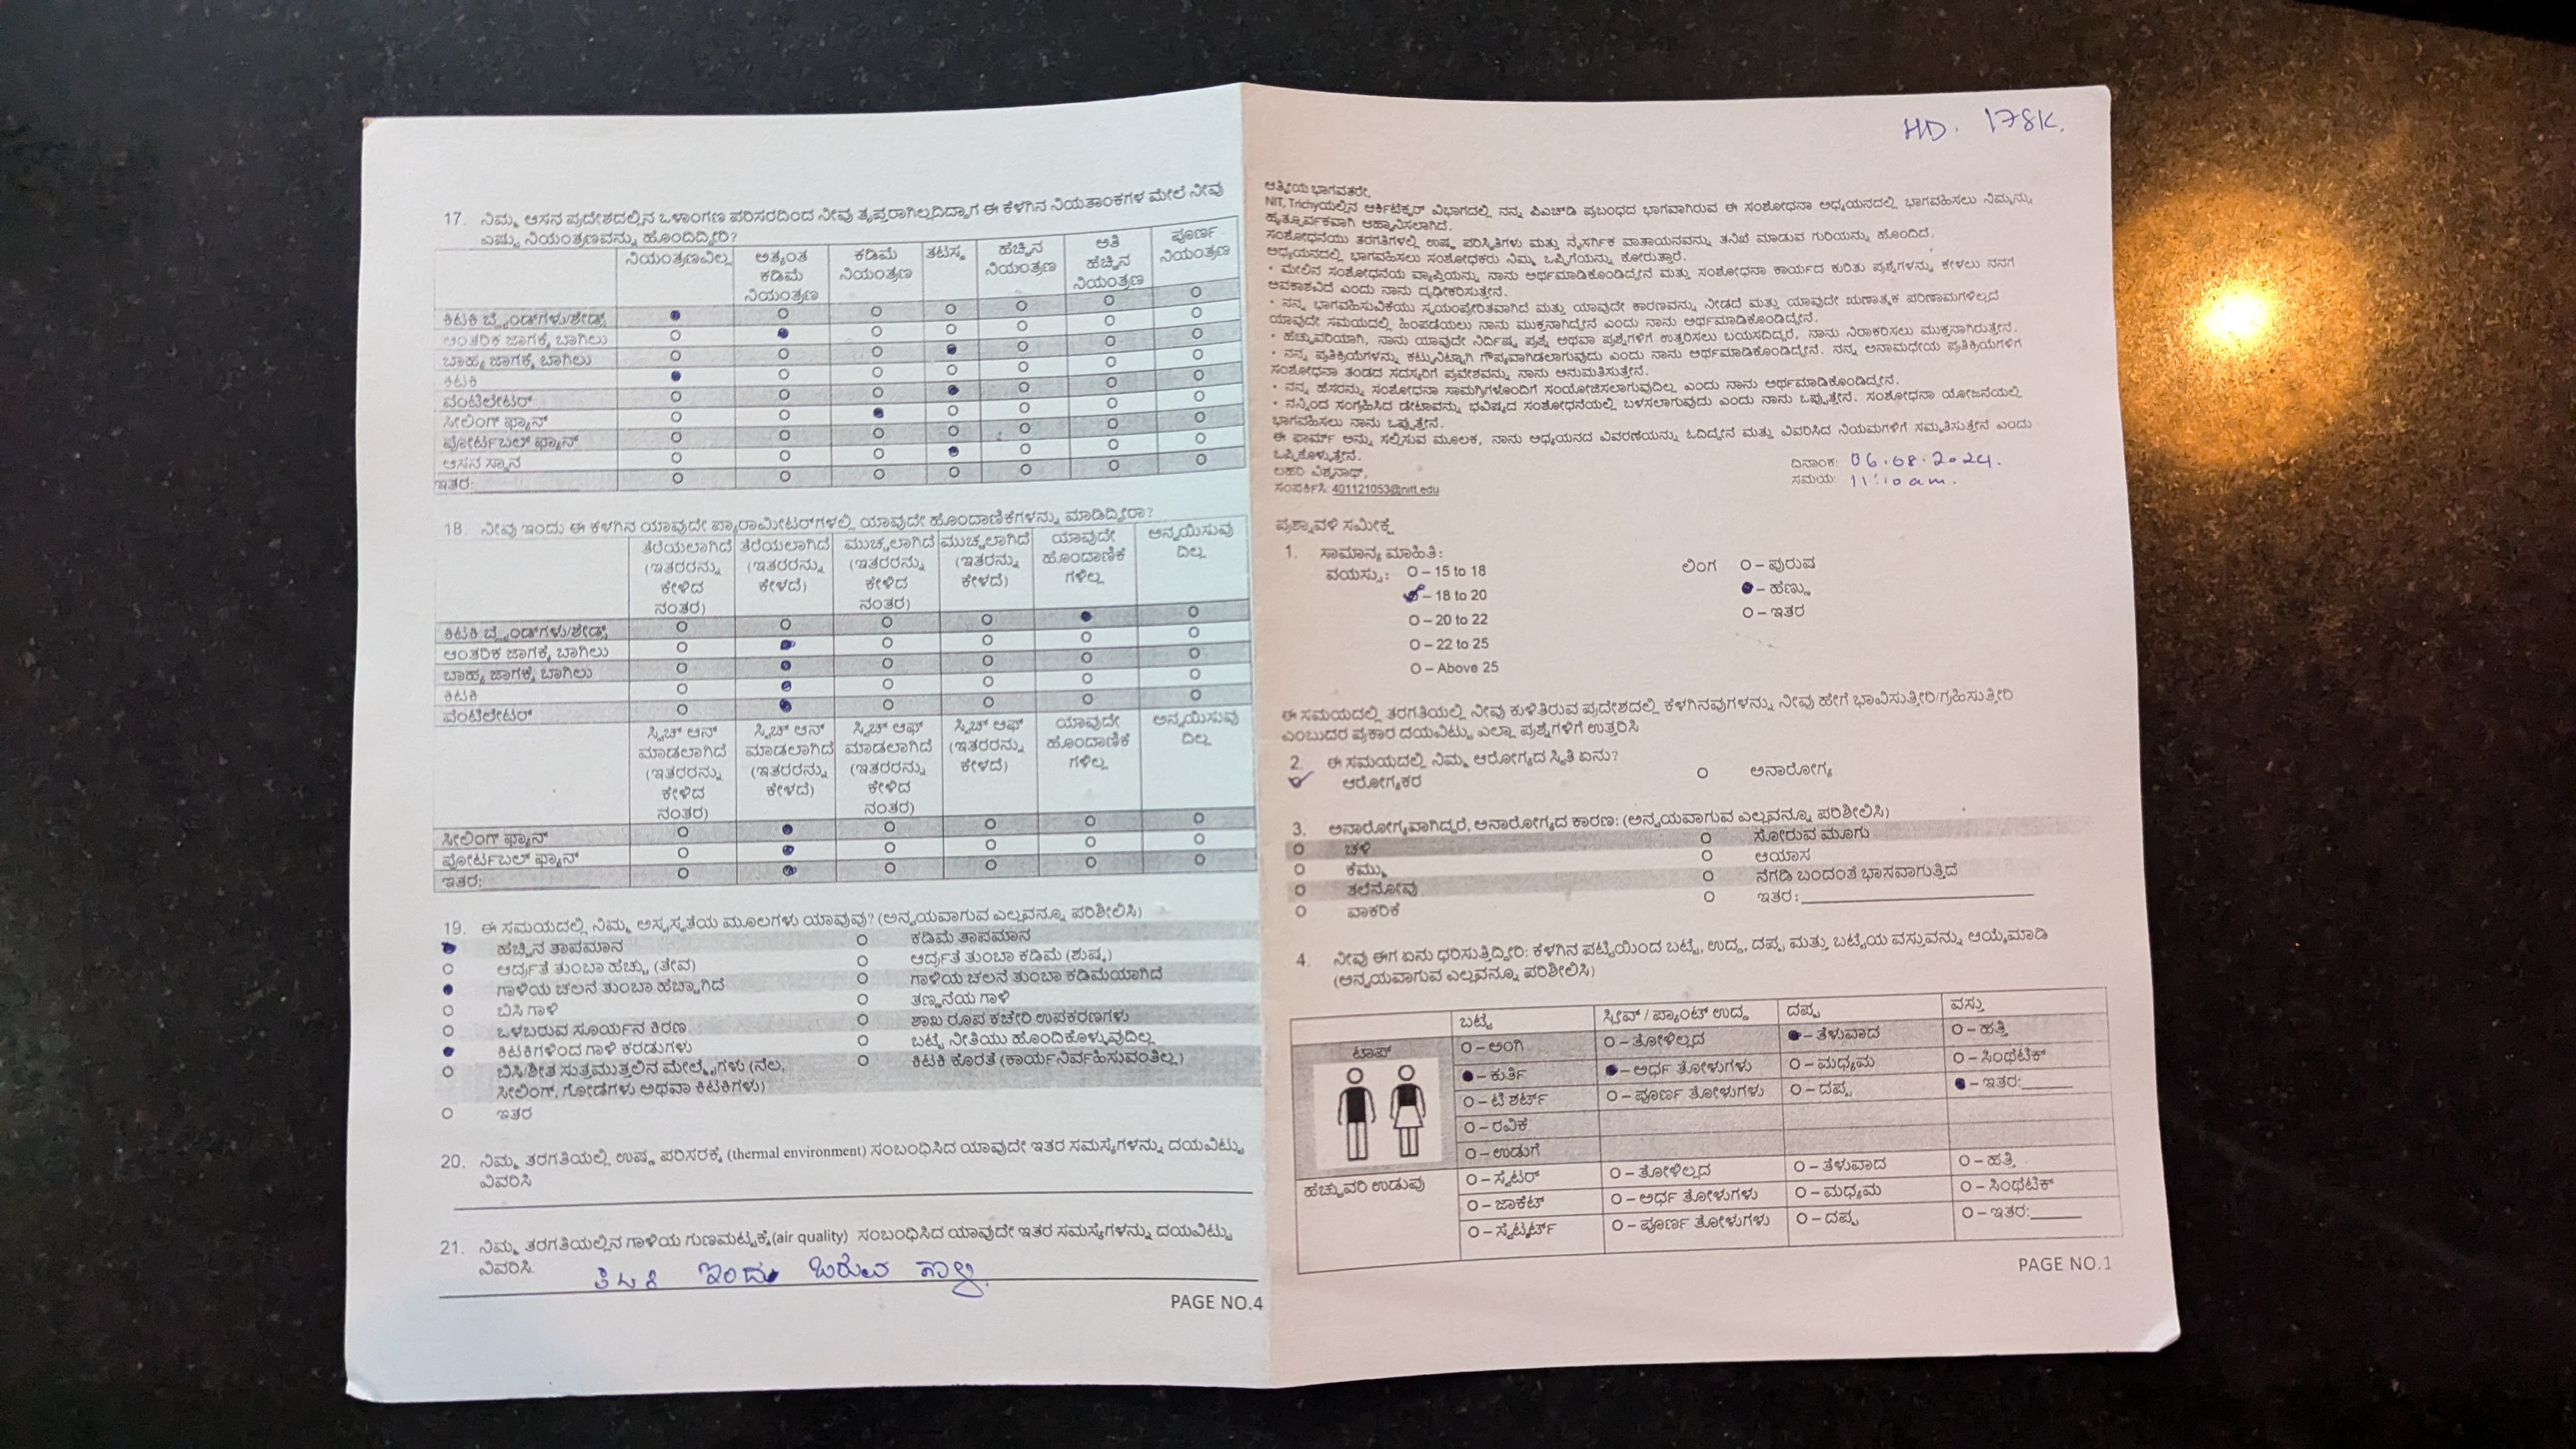 17. ನಿಮ್ಮ ಆಸನ ಪ್ರದೇಶದಲ್ಲಿನ ಒಳಾಂಗಣ ಪರಿಸರದಿಂದ ನೀವು ತೃಪ್ತರಾಗಿಲ್ಲದಿದ್ದಾಗ ಈ ಕೆಳಗಿನ ನಿಯತಾಂಕಗಳ ಮೇಲೆ ನೀವು
ಎಷ್ಟು ನಿಯಂತ್ರಣವನ್ನು ಹೊಂದಿದ್ದೀರಿ?
ನಿಯಂತ್ರಣವಿಲ್ಲ ಅತ್ಯಂತ ಕಡಿಮೆ ನಿಯಂತ್ರಣ ಕಡಿಮೆ ನಿಯಂತ್ರಣ ತಟಸ್ಥ ಹೆಚ್ಚಿನ ನಿಯಂತ್ರಣ ಅತಿ ಹೆಚ್ಚಿನ ನಿಯಂತ್ರಣ ಪೂರ್ಣ ನಿಯಂತ್ರಣ
ಕಿಟಕಿ ಬ್ಲೈಂಡ್‌ಗಳು/ಶೇಡ್ಸ್
ಆಂತರಿಕ ಜಾಗಕ್ಕೆ ಬಾಗಿಲು
ಬಾಹ್ಯ ಜಾಗಕ್ಕೆ ಬಾಗಿಲು
ಕಿಟಕಿ
ವೆಂಟಿಲೇಟರ್
ಸೀಲಿಂಗ್ ಫ್ಯಾನ್
ಪೋರ್ಟಬಲ್ ಫ್ಯಾನ್
ಆಸನ ಸ್ಥಾನ
ಇತರ:
18. ನೀವು ಇಂದು ಈ ಕೆಳಗಿನ ಯಾವುದೇ ಪ್ಯಾರಾಮೀಟರ್‌ಗಳಲ್ಲಿ ಯಾವುದೇ ಹೊಂದಾಣಿಕೆಗಳನ್ನು ಮಾಡಿದ್ದೀರಾ?
ತೆರೆಯಲಾಗಿದೆ (ಇತರರನ್ನು ಕೇಳಿದ ನಂತರ) ತೆರೆಯಲಾಗಿದೆ (ಇತರರನ್ನು ಕೇಳದೆ) ಮುಚ್ಚಲಾಗಿದೆ (ಇತರರನ್ನು ಕೇಳಿದ ನಂತರ) ಮುಚ್ಚಲಾಗಿದೆ (ಇತರರನ್ನು ಕೇಳದೆ) ಯಾವುದೇ ಹೊಂದಾಣಿಕೆ ಗಳಿಲ್ಲ ಅನ್ವಯಿಸುವು ದಿಲ್ಲ
ಕಿಟಕಿ ಬ್ಲೈಂಡ್‌ಗಳು/ಶೇಡ್ಸ್
ಆಂತರಿಕ ಜಾಗಕ್ಕೆ ಬಾಗಿಲು
ಬಾಹ್ಯ ಜಾಗಕ್ಕೆ ಬಾಗಿಲು
ಕಿಟಕಿ
ವೆಂಟಿಲೇಟರ್
ಸ್ವಿಚ್ ಆನ್ ಮಾಡಲಾಗಿದೆ (ಇತರರನ್ನು ಕೇಳಿದ ನಂತರ) ಸ್ವಿಚ್ ಆನ್ ಮಾಡಲಾಗಿದೆ (ಇತರರನ್ನು ಕೇಳದೆ) ಸ್ವಿಚ್ ಆಫ್ ಮಾಡಲಾಗಿದೆ (ಇತರರನ್ನು ಕೇಳಿದ ನಂತರ) ಸ್ವಿಚ್ ಆಫ್ (ಇತರರನ್ನು ಕೇಳದೆ) ಯಾವುದೇ ಹೊಂದಾಣಿಕೆ ಗಳಿಲ್ಲ ಅನ್ವಯಿಸುವು ದಿಲ್ಲ
ಸೀಲಿಂಗ್ ಫ್ಯಾನ್
ಪೋರ್ಟಬಲ್ ಫ್ಯಾನ್
ಇತರ:
19. ಈ ಸಮಯದಲ್ಲಿ ನಿಮ್ಮ ಅಸ್ವಸ್ಥತೆಯ ಮೂಲಗಳು ಯಾವುವು? (ಅನ್ವಯವಾಗುವ ಎಲ್ಲವನ್ನೂ ಪರಿಶೀಲಿಸಿ)
ಹೆಚ್ಚಿನ ತಾಪಮಾನ ಕಡಿಮೆ ತಾಪಮಾನ
ಆರ್ದ್ರತೆ ತುಂಬಾ ಹೆಚ್ಚು (ತೇವ) ಆರ್ದ್ರತೆ ತುಂಬಾ ಕಡಿಮೆ (ಶುಷ್ಕ)
ಗಾಳಿಯ ಚಲನೆ ತುಂಬಾ ಹೆಚ್ಚಾಗಿದೆ ಗಾಳಿಯ ಚಲನೆ ತುಂಬಾ ಕಡಿಮೆಯಾಗಿದೆ
ಬಿಸಿ ಗಾಳಿ ತಣ್ಣನೆಯ ಗಾಳಿ
ಒಳಬರುವ ಸೂರ್ಯನ ಕಿರಣ ಶಾಖ ರೂಪ ಕಚೇರಿ ಉಪಕರಣಗಳು
ಕಿಟಕಿಗಳಿಂದ ಗಾಳಿ ಕರಡುಗಳು ಬಟ್ಟೆ ನೀತಿಯು ಹೊಂದಿಕೊಳ್ಳುವುದಿಲ್ಲ
ಬಿಸಿ/ಶೀತ ಸುತ್ತಮುತ್ತಲಿನ ಮೇಲ್ಮೈಗಳು (ನೆಲ, ಕಿಟಕಿ ಕೊರತೆ (ಕಾರ್ಯನಿರ್ವಹಿಸುವಂತಿಲ್ಲ)
ಸೀಲಿಂಗ್, ಗೋಡೆಗಳು ಅಥವಾ ಕಿಟಕಿಗಳು)
ಇತರ
20. ನಿಮ್ಮ ತರಗತಿಯಲ್ಲಿ ಉಷ್ಣ ಪರಿಸರಕ್ಕೆ (thermal environment) ಸಂಬಂಧಿಸಿದ ಯಾವುದೇ ಇತರ ಸಮಸ್ಯೆಗಳನ್ನು ದಯವಿಟ್ಟು
ವಿವರಿಸಿ
21. ನಿಮ್ಮ ತರಗತಿಯಲ್ಲಿನ ಗಾಳಿಯ ಗುಣಮಟ್ಟಕ್ಕೆ(air quality) ಸಂಬಂಧಿಸಿದ ಯಾವುದೇ ಇತರ ಸಮಸ್ಯೆಗಳನ್ನು ದಯವಿಟ್ಟು
ವಿವರಿಸಿ. ಕಿಟಕಿ ಇಂದು ಬರುವ ಗಾಳಿ.
PAGE NO.4
HD. 178K.
ಆತ್ಮೀಯ ಭಾಗವತರೇ,
NIT, Trichyಯಲ್ಲಿನ ಆರ್ಕಿಟೆಕ್ಚರ್ ವಿಭಾಗದಲ್ಲಿ ನನ್ನ ಪಿಎಚ್‌ಡಿ ಪ್ರಬಂಧದ ಭಾಗವಾಗಿರುವ ಈ ಸಂಶೋಧನಾ ಅಧ್ಯಯನದಲ್ಲಿ ಭಾಗವಹಿಸಲು ನಿಮ್ಮನ್ನು
ಹೃತ್ಪೂರ್ವಕವಾಗಿ ಆಹ್ವಾನಿಸಲಾಗಿದೆ.
ಸಂಶೋಧನೆಯು ತರಗತಿಗಳಲ್ಲಿ ಉಷ್ಣ ಪರಿಸ್ಥಿತಿಗಳು ಮತ್ತು ನೈಸರ್ಗಿಕ ವಾತಾಯನವನ್ನು ತನಿಖೆ ಮಾಡುವ ಗುರಿಯನ್ನು ಹೊಂದಿದೆ.
ಅಧ್ಯಯನದಲ್ಲಿ ಭಾಗವಹಿಸಲು ಸಂಶೋಧಕರು ನಿಮ್ಮ ಒಪ್ಪಿಗೆಯನ್ನು ಕೋರುತ್ತಾರೆ.
• ಮೇಲಿನ ಸಂಶೋಧನೆಯ ವ್ಯಾಪ್ತಿಯನ್ನು ನಾನು ಅರ್ಥಮಾಡಿಕೊಂಡಿದ್ದೇನೆ ಮತ್ತು ಸಂಶೋಧನಾ ಕಾರ್ಯದ ಕುರಿತು ಪ್ರಶ್ನೆಗಳನ್ನು ಕೇಳಲು ನನಗೆ
ಅವಕಾಶವಿದೆ ಎಂದು ನಾನು ದೃಢೀಕರಿಸುತ್ತೇನೆ.
• ನನ್ನ ಭಾಗವಹಿಸುವಿಕೆಯು ಸ್ವಯಂಪ್ರೇರಿತವಾಗಿದೆ ಮತ್ತು ಯಾವುದೇ ಕಾರಣವನ್ನು ನೀಡದೆ ಮತ್ತು ಯಾವುದೇ ಋಣಾತ್ಮಕ ಪರಿಣಾಮಗಳಿಲ್ಲದೆ
ಯಾವುದೇ ಸಮಯದಲ್ಲಿ ಹಿಂಪಡೆಯಲು ನಾನು ಮುಕ್ತನಾಗಿದ್ದೇನೆ ಎಂದು ನಾನು ಅರ್ಥಮಾಡಿಕೊಂಡಿದ್ದೇನೆ.
• ಹೆಚ್ಚುವರಿಯಾಗಿ, ನಾನು ಯಾವುದೇ ನಿರ್ದಿಷ್ಟ ಪ್ರಶ್ನೆ ಅಥವಾ ಪ್ರಶ್ನೆಗಳಿಗೆ ಉತ್ತರಿಸಲು ಬಯಸದಿದ್ದರೆ, ನಾನು ನಿರಾಕರಿಸಲು ಮುಕ್ತನಾಗಿರುತ್ತೇನೆ.
• ನನ್ನ ಪ್ರತಿಕ್ರಿಯೆಗಳನ್ನು ಕಟ್ಟುನಿಟ್ಟಾಗಿ ಗೌಪ್ಯವಾಗಿಡಲಾಗುವುದು ಎಂದು ನಾನು ಅರ್ಥಮಾಡಿಕೊಂಡಿದ್ದೇನೆ. ನನ್ನ ಅನಾಮಧೇಯ ಪ್ರತಿಕ್ರಿಯೆಗಳಿಗೆ
ಸಂಶೋಧನಾ ತಂಡದ ಸದಸ್ಯರಿಗೆ ಪ್ರವೇಶವನ್ನು ನಾನು ಅನುಮತಿಸುತ್ತೇನೆ.
• ನನ್ನ ಹೆಸರನ್ನು ಸಂಶೋಧನಾ ಸಾಮಗ್ರಿಗಳೊಂದಿಗೆ ಸಂಯೋಜಿಸಲಾಗುವುದಿಲ್ಲ ಎಂದು ನಾನು ಅರ್ಥಮಾಡಿಕೊಂಡಿದ್ದೇನೆ.
• ನನ್ನಿಂದ ಸಂಗ್ರಹಿಸಿದ ಡೇಟಾವನ್ನು ಭವಿಷ್ಯದ ಸಂಶೋಧನೆಯಲ್ಲಿ ಬಳಸಲಾಗುವುದು ಎಂದು ನಾನು ಒಪ್ಪುತ್ತೇನೆ. ಸಂಶೋಧನಾ ಯೋಜನೆಯಲ್ಲಿ
ಭಾಗವಹಿಸಲು ನಾನು ಒಪ್ಪುತ್ತೇನೆ.
ಈ ಫಾರ್ಮ್ ಅನ್ನು ಸಲ್ಲಿಸುವ ಮೂಲಕ, ನಾನು ಅಧ್ಯಯನದ ವಿವರಣೆಯನ್ನು ಓದಿದ್ದೇನೆ ಮತ್ತು ವಿವರಿಸಿದ ನಿಯಮಗಳಿಗೆ ಸಮ್ಮತಿಸುತ್ತೇನೆ ಎಂದು
ಒಪ್ಪಿಕೊಳ್ಳುತ್ತೇನೆ.
ಲಹರಿ ವಿಶ್ವನಾಥ್,
ಸಂಪರ್ಕಿಸಿ: 401121053@nitt.edu
ದಿನಾಂಕ: 06.08.2024.
ಸಮಯ: 11:10 am.
ಪ್ರಶ್ನಾವಳಿ ಸಮೀಕ್ಷೆ
1. ಸಾಮಾನ್ಯ ಮಾಹಿತಿ:
ವಯಸ್ಸು: O – 15 to 18 ಲಿಂಗ O – ಪುರುಷ
– 18 to 20 – ಹೆಣ್ಣು
O – 20 to 22 O – ಇತರ
O – 22 to 25
O – Above 25
ಈ ಸಮಯದಲ್ಲಿ ತರಗತಿಯಲ್ಲಿ ನೀವು ಕುಳಿತಿರುವ ಪ್ರದೇಶದಲ್ಲಿ ಕೆಳಗಿನವುಗಳನ್ನು ನೀವು ಹೇಗೆ ಭಾವಿಸುತ್ತೀರಿ/ಗ್ರಹಿಸುತ್ತೀರಿ
ಎಂಬುದರ ಪ್ರಕಾರ ದಯವಿಟ್ಟು ಎಲ್ಲಾ ಪ್ರಶ್ನೆಗಳಿಗೆ ಉತ್ತರಿಸಿ
2. ಈ ಸಮಯದಲ್ಲಿ ನಿಮ್ಮ ಆರೋಗ್ಯದ ಸ್ಥಿತಿ ಏನು?
ಆರೋಗ್ಯಕರ O ಅನಾರೋಗ್ಯ
3. ಅನಾರೋಗ್ಯವಾಗಿದ್ದರೆ, ಅನಾರೋಗ್ಯದ ಕಾರಣ: (ಅನ್ವಯವಾಗುವ ಎಲ್ಲವನ್ನೂ ಪರಿಶೀಲಿಸಿ)
O ಚಳಿ O ಸೋರುವ ಮೂಗು
O ಕೆಮ್ಮು O ಆಯಾಸ
O ತಲೆನೋವು O ನೆಗಡಿ ಬಂದಂತೆ ಭಾಸವಾಗುತ್ತಿದೆ
O ವಾಕರಿಕೆ O ಇತರ:
4. ನೀವು ಈಗ ಏನು ಧರಿಸುತ್ತಿದ್ದೀರಿ: ಕೆಳಗಿನ ಪಟ್ಟಿಯಿಂದ ಬಟ್ಟೆ, ಉದ್ದ, ದಪ್ಪ ಮತ್ತು ಬಟ್ಟೆಯ ವಸ್ತುವನ್ನು ಆಯ್ಕೆಮಾಡಿ
(ಅನ್ವಯವಾಗುವ ಎಲ್ಲವನ್ನೂ ಪರಿಶೀಲಿಸಿ)
ಬಟ್ಟೆ ಸ್ಲೀವ್ / ಪ್ಯಾಂಟ್ ಉದ್ದ ದಪ್ಪ ವಸ್ತು
ಟಾಪ್ O – ಅಂಗಿ O – ತೋಳಿಲ್ಲದ – ತೆಳುವಾದ O – ಹತ್ತಿ
– ಕುರ್ತಿ – ಅರ್ಧ ತೋಳುಗಳು O – ಮಧ್ಯಮ O – ಸಿಂಥೆಟಿಕ್
O – ಟಿ ಶರ್ಟ್ O – ಪೂರ್ಣ ತೋಳುಗಳು O – ದಪ್ಪ – ಇತರ:
O – ರವಿಕೆ
O – ಉಡುಗೆ
ಹೆಚ್ಚುವರಿ ಉಡುಪು O – ಸ್ವೆಟರ್ O – ತೋಳಿಲ್ಲದ O – ತೆಳುವಾದ O – ಹತ್ತಿ
O – ಜಾಕೆಟ್ O – ಅರ್ಧ ತೋಳುಗಳು O – ಮಧ್ಯಮ O – ಸಿಂಥೆಟಿಕ್
O – ಸ್ವೆಟ್ಶರ್ಟ್ O – ಪೂರ್ಣ ತೋಳುಗಳು O – ದಪ್ಪ O – ಇತರ:
PAGE NO.1